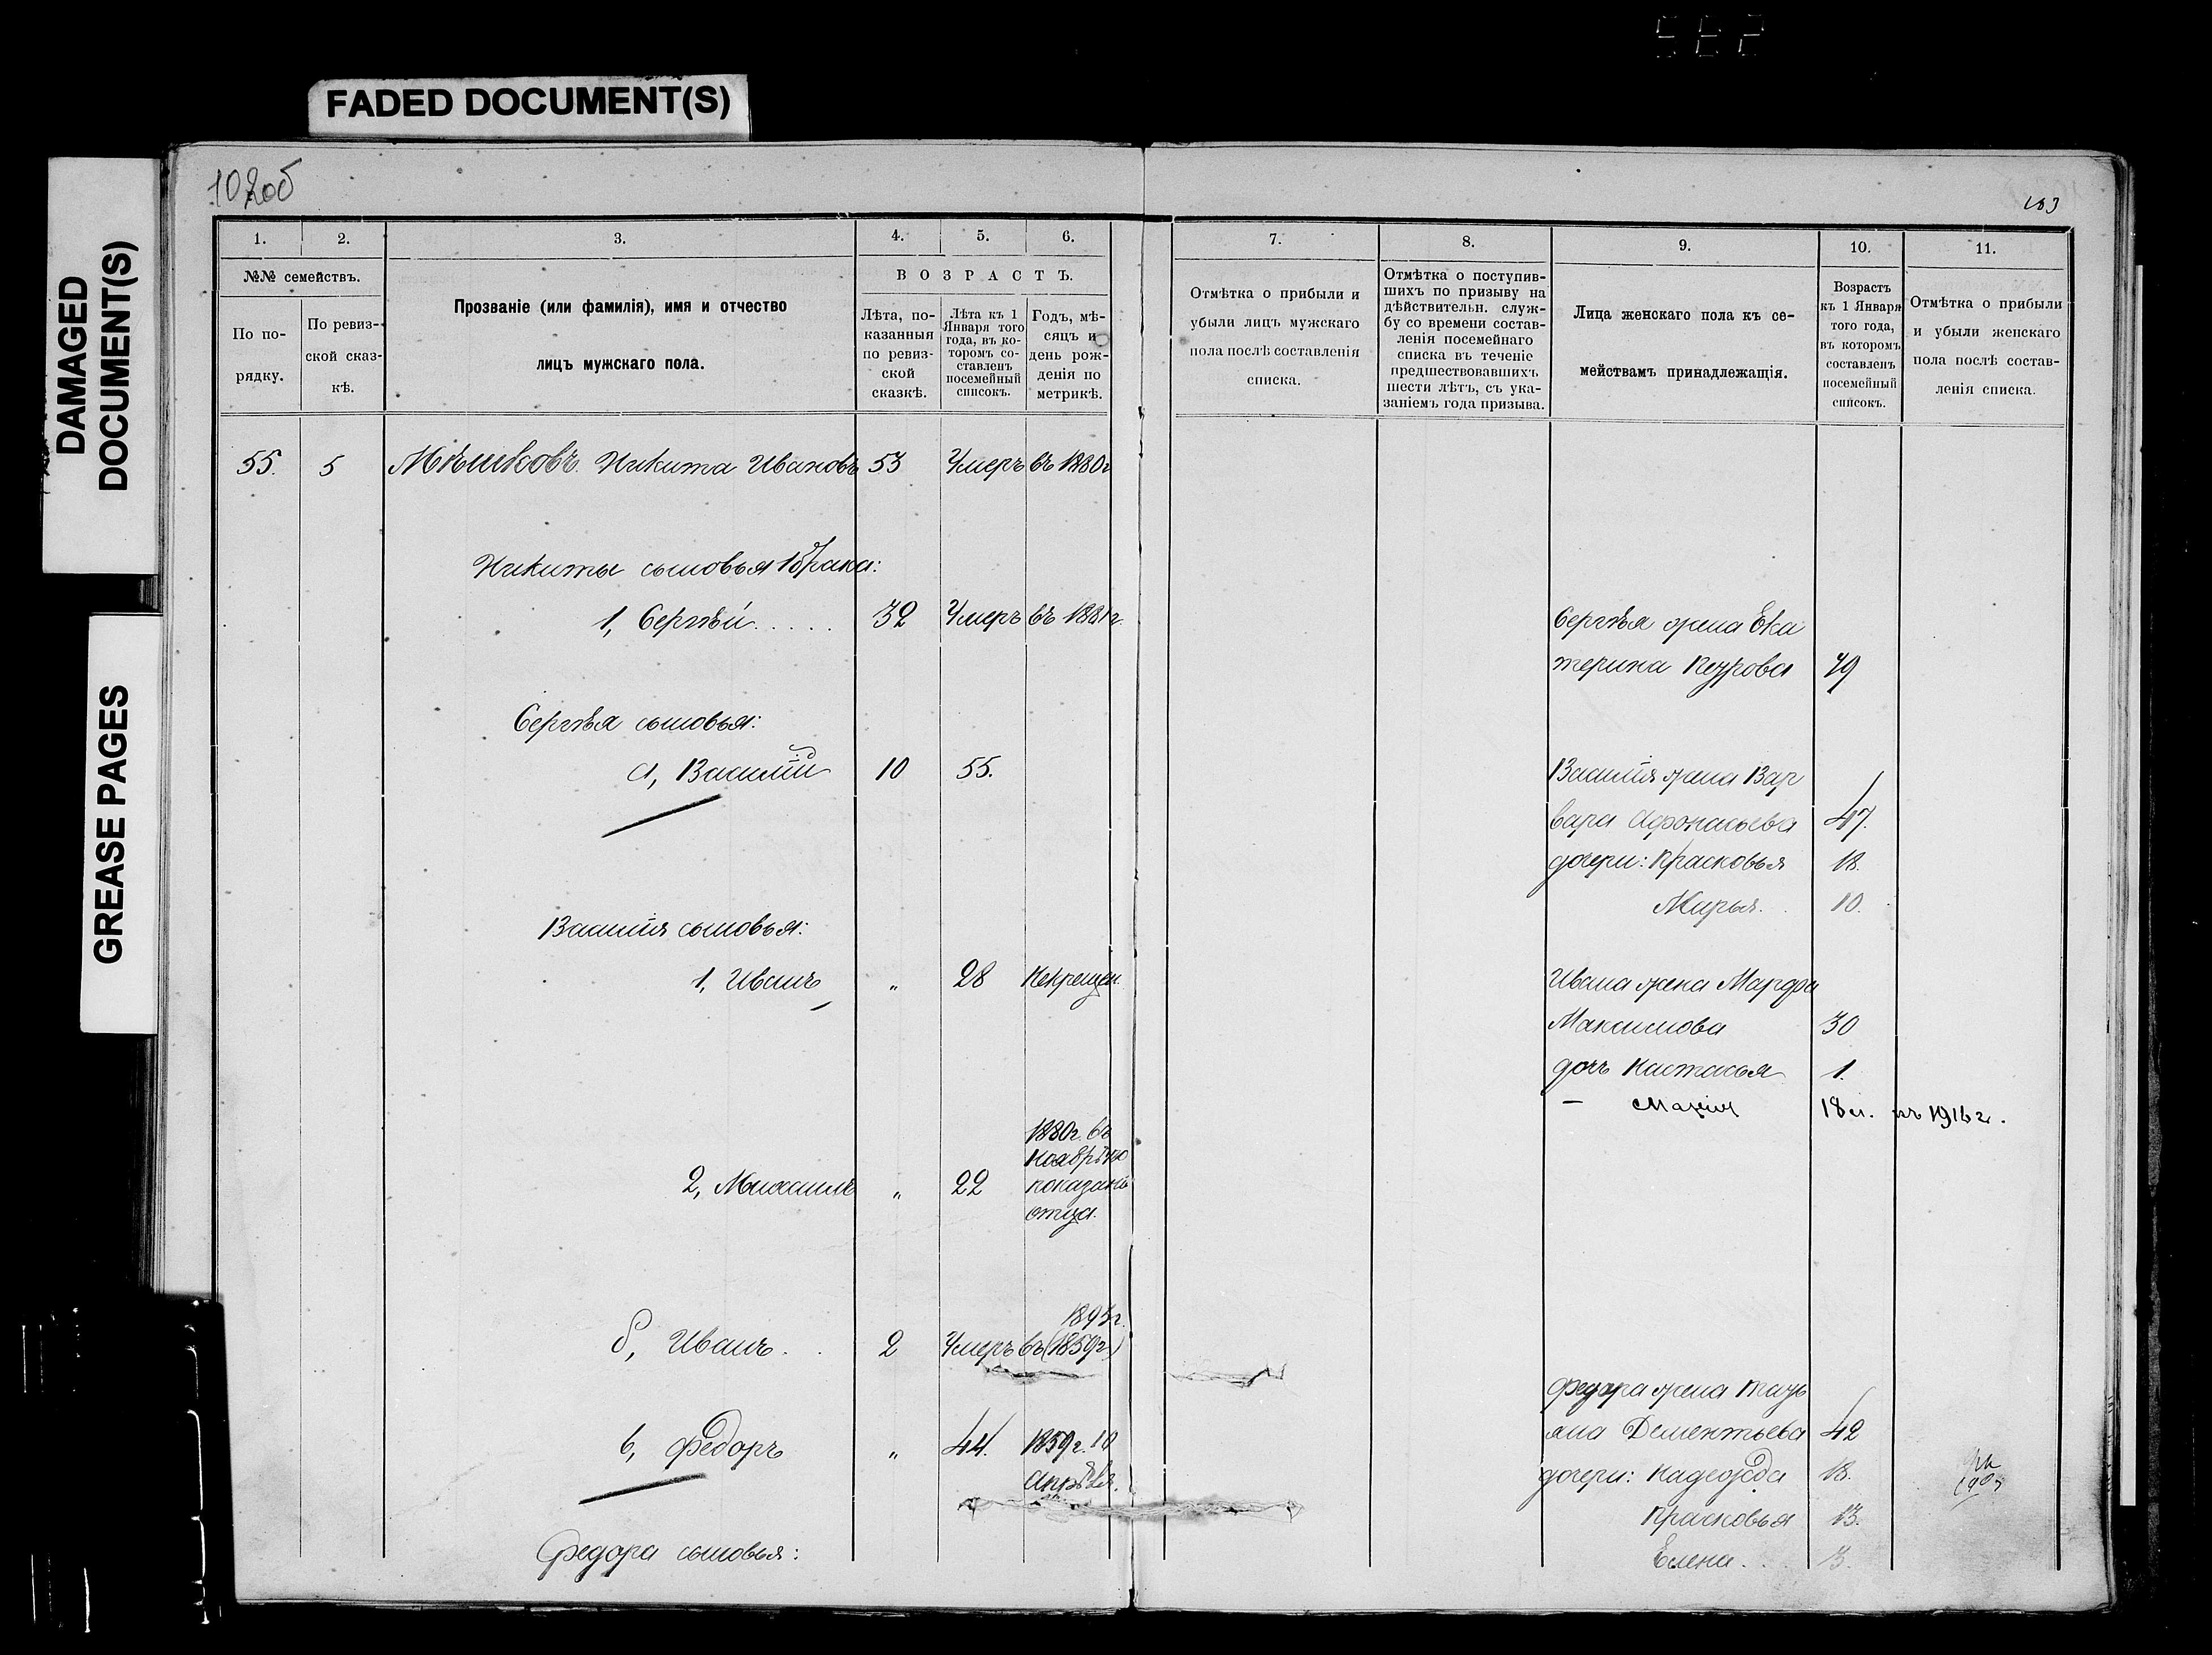 FADED DOCUMENT(S)
DAMAGED DOCUMENT(S)
GREASE PAGES
102об
103
1.
2.
3.
4.
5.
6.
7.
8.
9.
10.
11.
№№ семействъ.
По порядку.
По ревизской сказкѣ.
Прозваніе (или фамилія), имя и отчество
лицъ мужскаго пола.
ВОЗРАСТЪ.
Лѣта, показанныя по ревизской сказкѣ.
Лѣта къ 1 Января того года, въ которомъ составленъ посемейный списокъ.
Годъ, мѣсяцъ и день рожденія по метрикѣ.
Отмѣтка о прибыли и
убыли лицъ мужскаго
пола послѣ составленія
списка.
Отмѣтка о поступив-
шихъ по призыву на
дѣйствительн. служ-
бу со времени состав-
ленія посемейнаго
списка въ теченіе
предшествовавшихъ
шести лѣтъ, съ ука-
заніемъ года призыва.
Лица женскаго пола къ се-
мействамъ принадлежащія.
Возрастъ
къ 1 Января
того года,
въ которомъ
составленъ
посемейный
списокъ.
Отмѣтка о прибыли
и убыли женскаго
пола послѣ состав-
ленія списка.
55. 5 Мѣшковъ Никита Ивановъ 53 Умеръ въ 1880г
Никиты сыновья 1 брака:
1, Сергѣй..... 32 Умеръ въ 1881г.
Сергѣя жена Ека
терина Петрова 79
Сергѣя сыновья:
а, Василій 10 55.
Василія жена Вар
вара Афонасьева 47.
дочери: Прасковья 18.
Марья. 10.
Василія сыновья:
1, Иванъ " 28 Некрещен.
Ивана жена Марфа
Максимова 30
дочь Настасья 1.
— Марія 18 л. въ 1916 г.
2, Михаилъ " 22
1880г. въ
Ноябрѣ по
показанію
отца.
б, Иванъ.. 2 Умеръ въ (1859г.)
1893г.
Федора жена Тать
яна Дементьева 42
в, Федоръ " 44. 1859г. 10
Апрѣля.
дочери: Надежда 18.
Прасковья 13.
Елена... 3.
Федора сыновья: